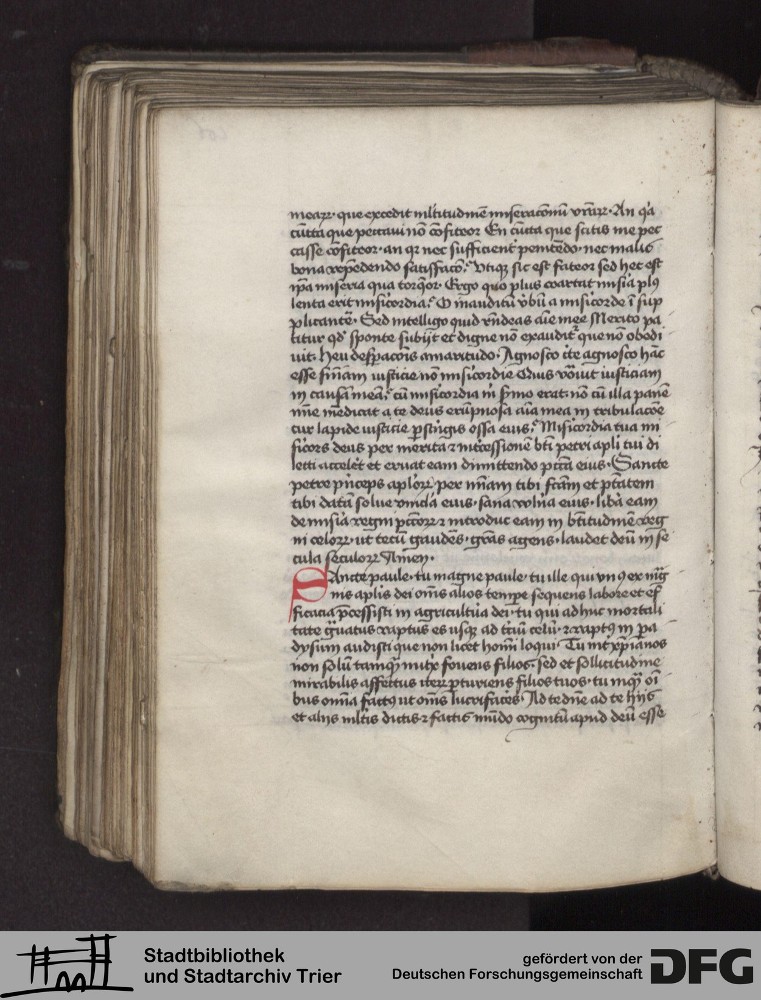 mearꝝ· que excedit ml̅titudinē miseracōnū vr̄arꝝ· An q̄a
cūcta que peccaui nō cōfiteor En cūcta que scitis me pec
casse cōfiteor· an qꝛ nec sufficient̛ penitēdo· nec malis
bona rependendo satisfacio? Vtiqꝫ sic est fateor sed hec est
ip̄a miseria qua torq̄or· Ergo quo plus coartat mis̄ia plꝰ
lenta erit mīcordia? O inauditū v̄bū a misicorde ī sup
plicantē· Sed intelligo quid rn̄deas aīe mee Merito pa
titur qd̛ sponte subijt et digne nō exaudit̛ que nō obedi
uit· heu desp̱acōis amaritudo· Agnosco c̄te agnosco hāc
esse sn̄iam iusticie nō misicordie Quis vocauit iusticiam
in causā meā? cū misicordia ꝫ s̄mo erat· nō cū illa panē
mendicat a te deus erūpnosa aīa mea in tribulacōe
cur lapide iusticie ꝑstringis ossa eius? Misicordia tua mi
sicors deus per merita ⁊ int̛cessionē bt̄i petri apl̄i tui di
lecti accelet et eruat eam dimittendo pct̄ā eius· Sancte
petre p̛nceps apl̄oꝝ· per mīam tibi fc̄am et p̄tatem
tibi datā solue vincla eius· sana vuln̄a eius· lib̄a eam
de mis̄ia regni pctōꝝ ⁊ introduc eam in bt̄itudinē reg
ni celoꝝ· ut tecū gaudēs· gr̄as agens· laudet deū in se
cula seculoꝝ Amen·
Sancte paule· tu magne paule· tu ille qui vnꝰ ex mag
nis ap̄lis dei om̄s alios tempe sequens labore et ef
ficacia p̄cessisti in agricultūa dei· tu qui adhuc mortali
tate g̛uatus raptus es usqꝫ ad tciū celū· ⁊ raptꝰ in pa
dysum audisti que non licet homī loqui· Tu int̛ xp̄ianos
non solū tamqꝫ nutꝛix fouens filios· sed et sollicitudīe
mirabilis affectus iteꝝ ꝑturiens filios tuos· tu inqꝫ oī
bus om̄ia factꝰ ut om̄s lucrifaceꝭ· Ad te dn̄e ad te hijs
et alijs ml̅tis dictis ⁊ factis mūdo cognitū apud deū esse
Stadtbibliothek
und Stadtarchiv Trier
gefördert von der
Deutschen Forschungsgemeinschaft
DFG